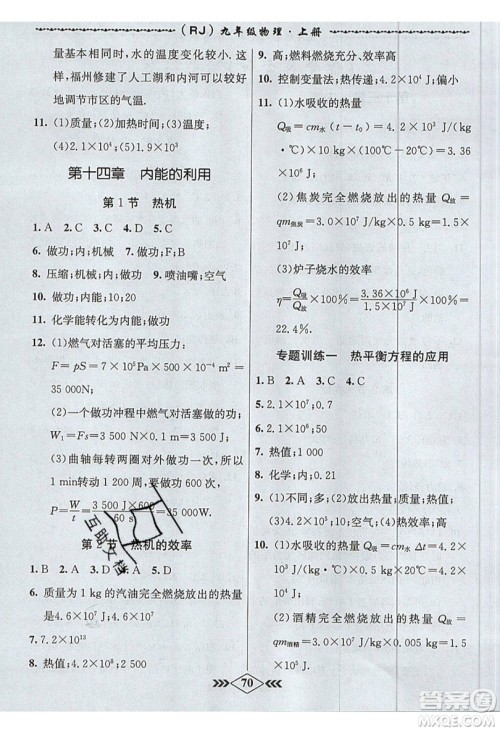 （RJ）九年级物理·上册
量基本相同时，水的温度变化较小．因
此，福州修建了人工湖和内河可以很好
地调节市区的气温．
11. (1)质量；(2)加热时间；(3)温度；
(4)2.1×10⁴；(5)1.9×10³
第十四章　内能的利用
第1节　热机
1. A　2. C　3. C　4. D　5. D
6. 做功；内；机械　7. F；B
8. 压缩；机械；内　9. 喷油嘴；空气
10. 做功；内能；10；20
11. 化学能转化为内能；做功
12. (1)燃气对活塞的平均压力：
F＝pS＝7×10⁵×50×10⁻⁴＝
3 500 N
(2)一个做功冲程中燃气对活塞做的功：
W＝Fl＝3 500×1＝3 500 J
(3)曲轴每转两圈对外做功一次，所以
1 min转动 1 200 r，要做功 600 次，
P＝W/t＝3 500 J×600/60 s＝35 000 W
第2节　热机的效率
1. B　2. D　3. A　4. B　5. D
6. 质量为 1 kg 的汽油完全燃烧放出的热量
是4.6×10⁷ J；4.6×10⁷
7. 2.2×10¹³
8. 热值；变大；2 500
9. 高；燃料燃烧充分、效率高
10. 控制变量法；热传递；4.2×10⁴ J；偏小
11. (1)水吸收的热量
Q吸＝cm水(t－t₀)＝4.2×10³ J/(kg
·℃)×10 kg×80 ℃＝3.36×
10⁶ J
(2)焦炭完全燃烧放出的热量Q放＝
qm焦炭＝3.0×10⁷ J/kg×0.5 kg＝1.5×
10⁷ J
(3)炉子烧水的效率
η＝Q吸/Q放×100%＝3.36×10⁶ J/1.5×10⁷ J×100%＝
22.4%
专题训练一　热平衡方程的应用
1. B　2. A　3. C　4. C
5. 2.1×10⁷；0.7
6. 2.1×10⁶；50
7. 热值；4.2×10⁴
8. 化学；内；0.21
9. (1)不同；多；(2)质量；(3)质量；热
值；(3)4.2×10³；6.3×10³
10. (1)水吸收的热量：Q吸＝cm水Δt＝
4.2×10³ J/(kg·℃)×0.1 kg×
20 ℃＝8.4×10³ J
(2)酒精完全燃烧放出的热量：Q放
70
互助文档
答案圈